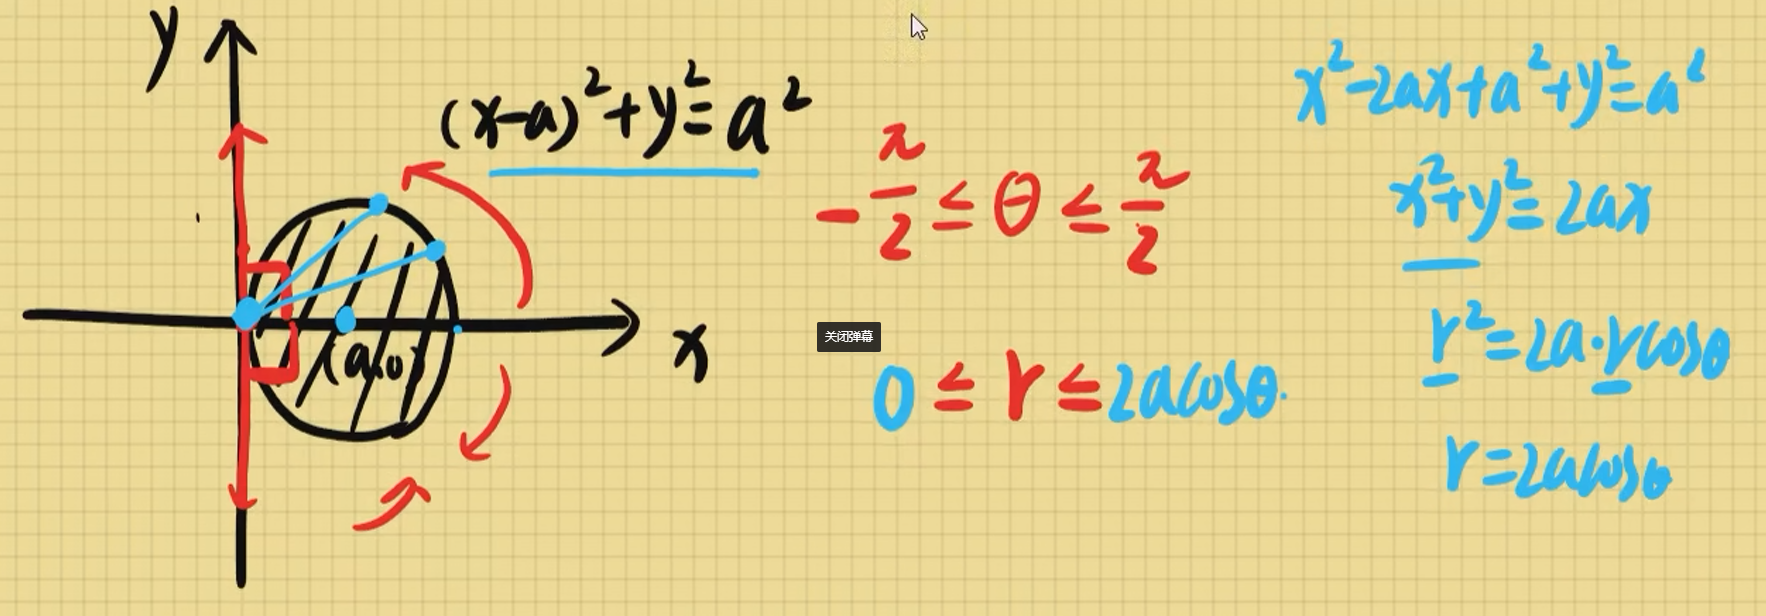 y
(x-a)²+y²=a²
x
(a,0)
-π/2 ≤ θ ≤ π/2
关闭弹幕
0 ≤ r ≤ 2acosθ.
x²-2ax+a²+y²=a²
x²+y²=2ax
r²=2a·rcosθ
r=2acosθ